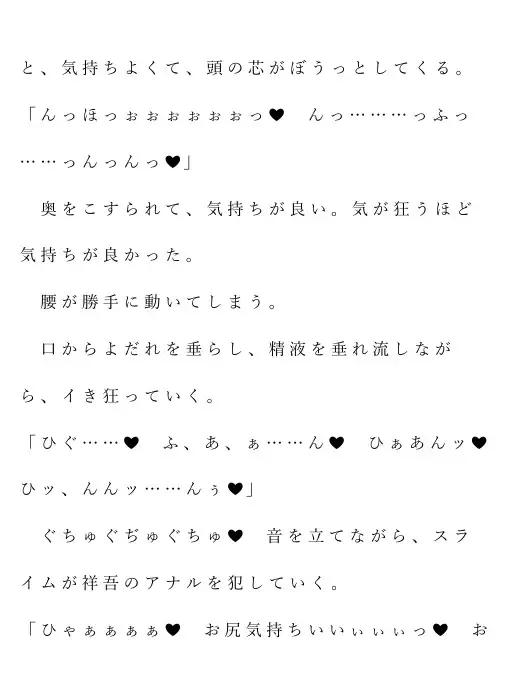 と、気持ちよくて、頭の芯がぼうっとしてくる。
「んっほっぉぉぉぉぉぉっ♥　んっ………っふっ
……っんっんっ♥」
　奥をこすられて、気持ちが良い。気が狂うほど
気持ちが良かった。
　腰が勝手に動いてしまう。
　口からよだれを垂らし、精液を垂れ流しなが
ら、イき狂っていく。
「ひぐ……♥　ふ、あ、ぁ……ん♥　ひぁあんッ♥
ひッ、んんッ……んぅ♥」
　ぐちゅぐぢゅぐちゅ♥　音を立てながら、スラ
イムが祥吾のアナルを犯していく。
「ひゃぁぁぁぁ♥　お尻気持ちいいぃぃぃっ♥　お